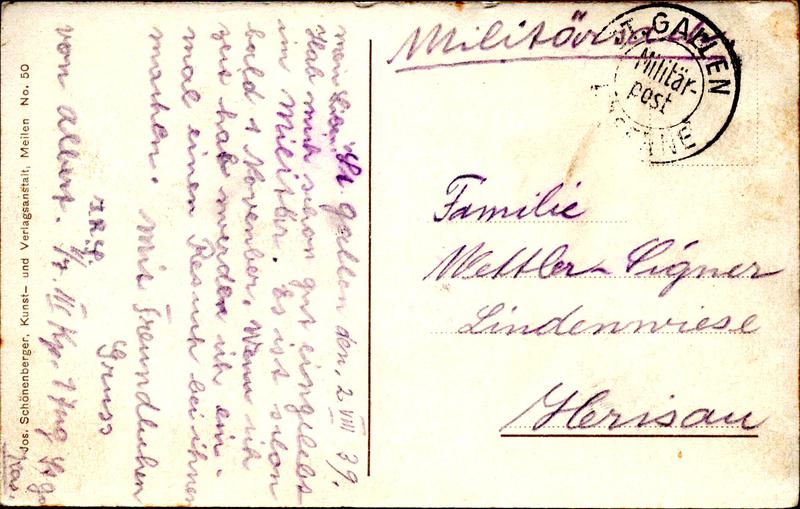 St. Gallen den, 2 VIII 39.
mein Lieni
Hab mich schon gut eingelebt
im Militär. Es ist schon
bald 1 November. Wenn ich
zeit hab werden ich ein-
mal einen Besuch bei ihnen
machen. Mit Freundlichen
Gruss
von Albert.
Militärsa
ST. GALLEN
Militär-
post
KASERNE
Familie
Mettler-Signer
Lindenwiese
Herisau
Jos. Schönenberger, Kunst- und Verlagsanstalt, Meilen No. 50